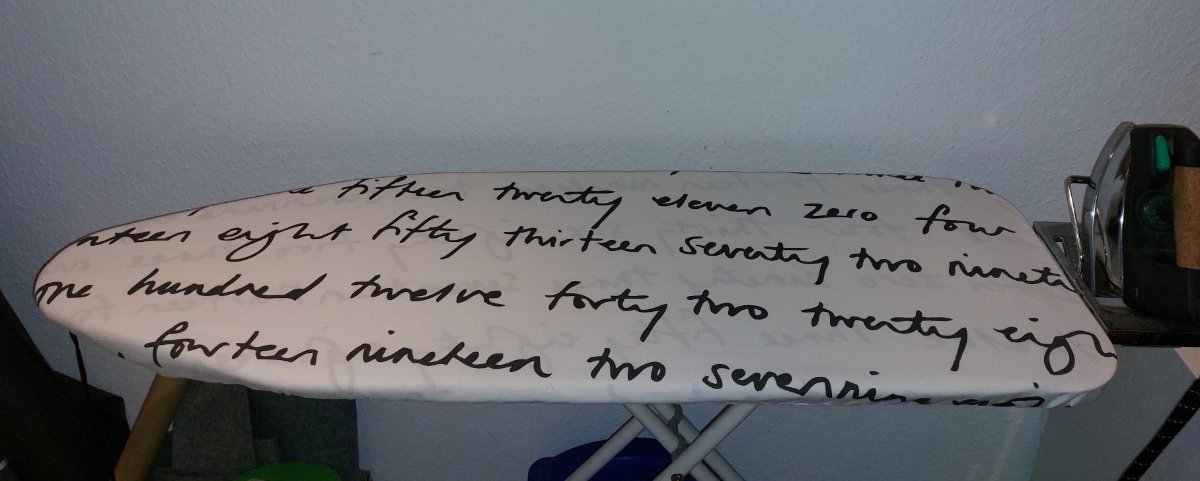 fifteen twenty eleven zero four
nteen eight fifty thirteen seventy two ninete
one hundred twelve forty two twenty eigh
fourteen nineteen two seven nine